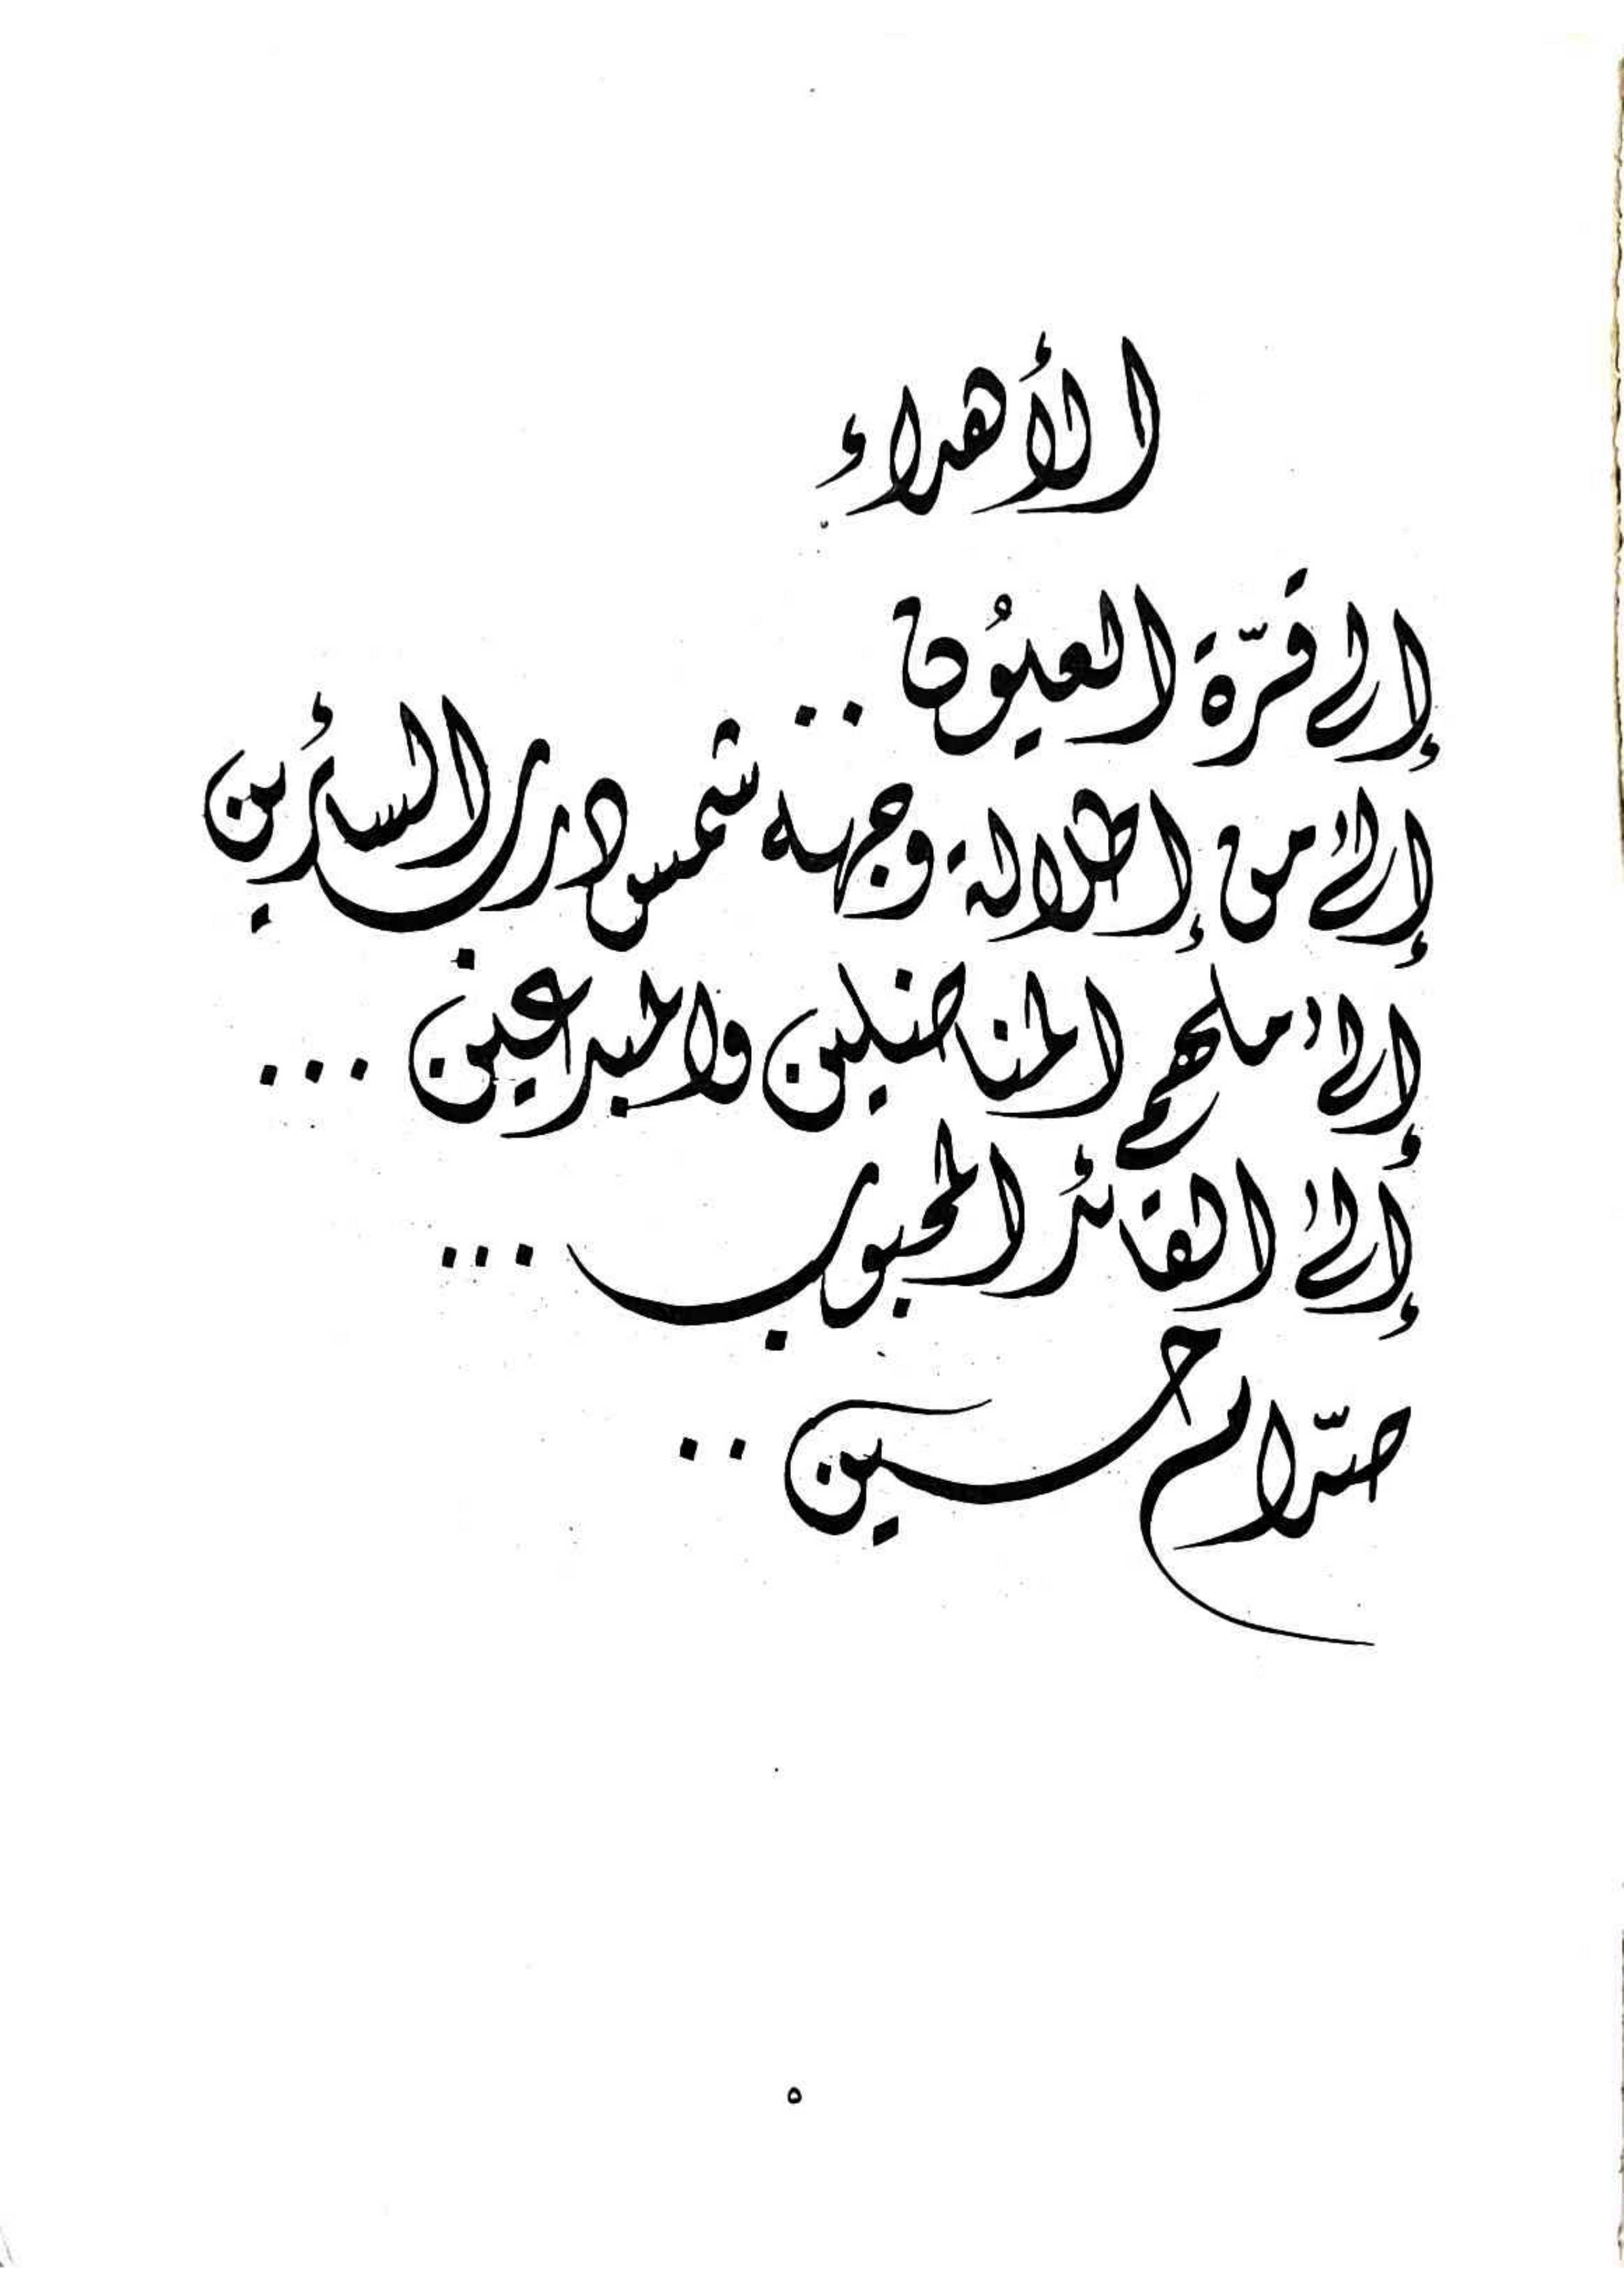 الأهداء
إلى قرّة العيُون ..
إلىٰ من إطلالة وجهه شمس درب السائرين
إلىٰ ملهم المناضلين والمبدعين ...
إلىٰ القائد المحبوب ...
صدّام حسين ..
٥